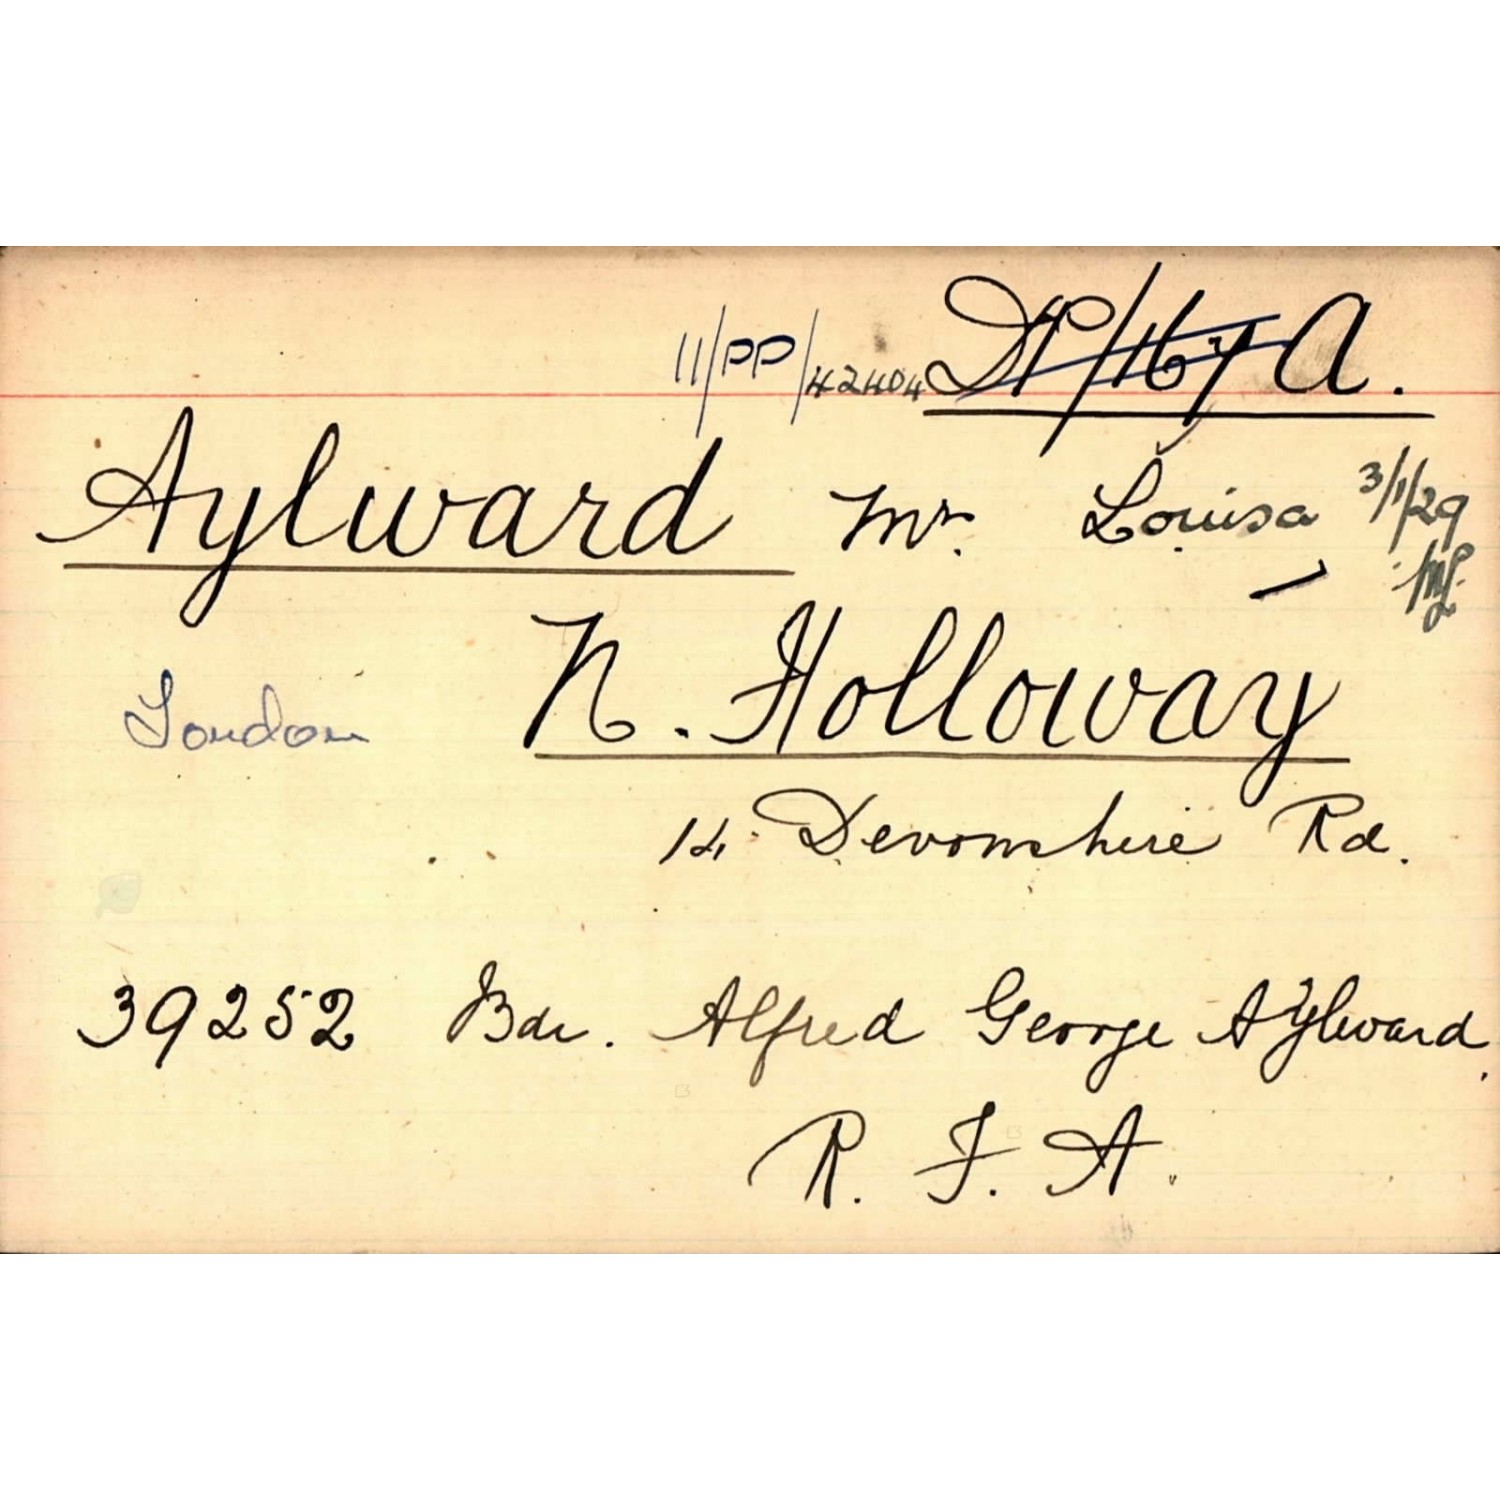 11/PP/42404 DP/167 A.
Aylward Mrs. Louisa 3/1/29
London N. Holloway
14 Devonshire Rd.
39252 Bdr. Alfred George Aylward.
R. F. A.